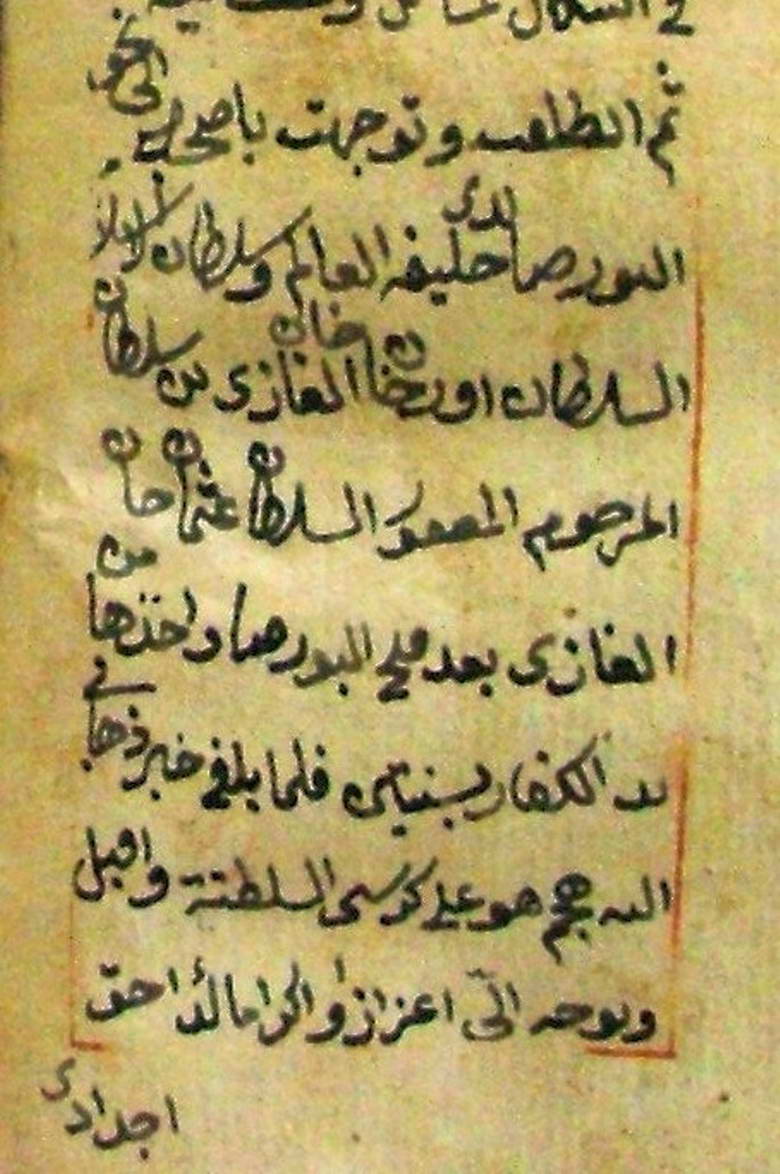 ثم انطلقت وتوجهت باصحابي الى نحو
البورصا لدى خليفه العالم وسلطان
السلطان اورخان خان الغازى بن سلطان
المرحوم المغفور السلطان عثمان خان
الغازى بعد فتح البورصا واخذها من
يد الكفار بسنتين فلما بلغ خبر ذهابى
اليه هجم هو على كرسى السلطنة واقبل
وتوجه الىّ اعزازا واكراما لدا حق
اجدادى